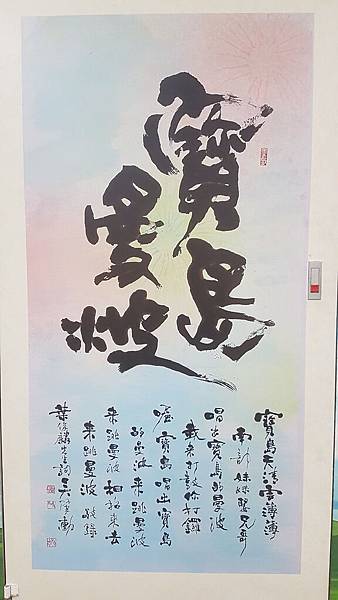 寶島
曼波
寶島天清雲薄薄
南部妹妹兄哥
唱出寶島的曼波
我來打鼓你打鑼
喔寶島唱出寶島
的曼波來跳曼波
來跳曼波相招來去
來跳曼波 敬錄
葉俊麟先生詞 吳